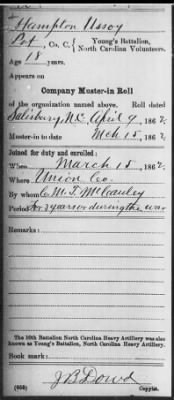 Hampton Ussoy
Pvt, Co. C, { Young's Battalion,
North Carolina Volunteers.
Age 18 years.
Appears on
Company Muster-in Roll
of the organization named above. Roll dated
Salisbury N.C. April 9, 1862.
Muster-in to date Mch 15, 1862.
Joined for duty and enrolled:
When March 15, 1862.
Where Union Co.
By whom C. M. T. McCauley
Period for 3 years or during the war
Remarks:
The 10th Battalion North Carolina Heavy Artillery was also
known as Young's Battalion, North Carolina Heavy Artillery.
Book mark:
J B Dowd
Copyist.